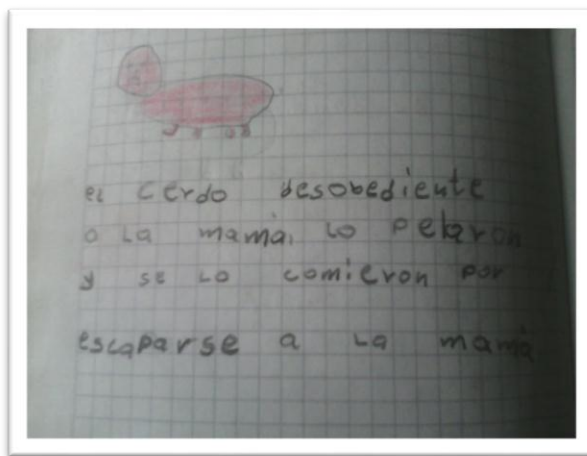 el cerdo desobediente
a la mamá, lo pelaron
y se lo comieron por
escaparse a la mamá